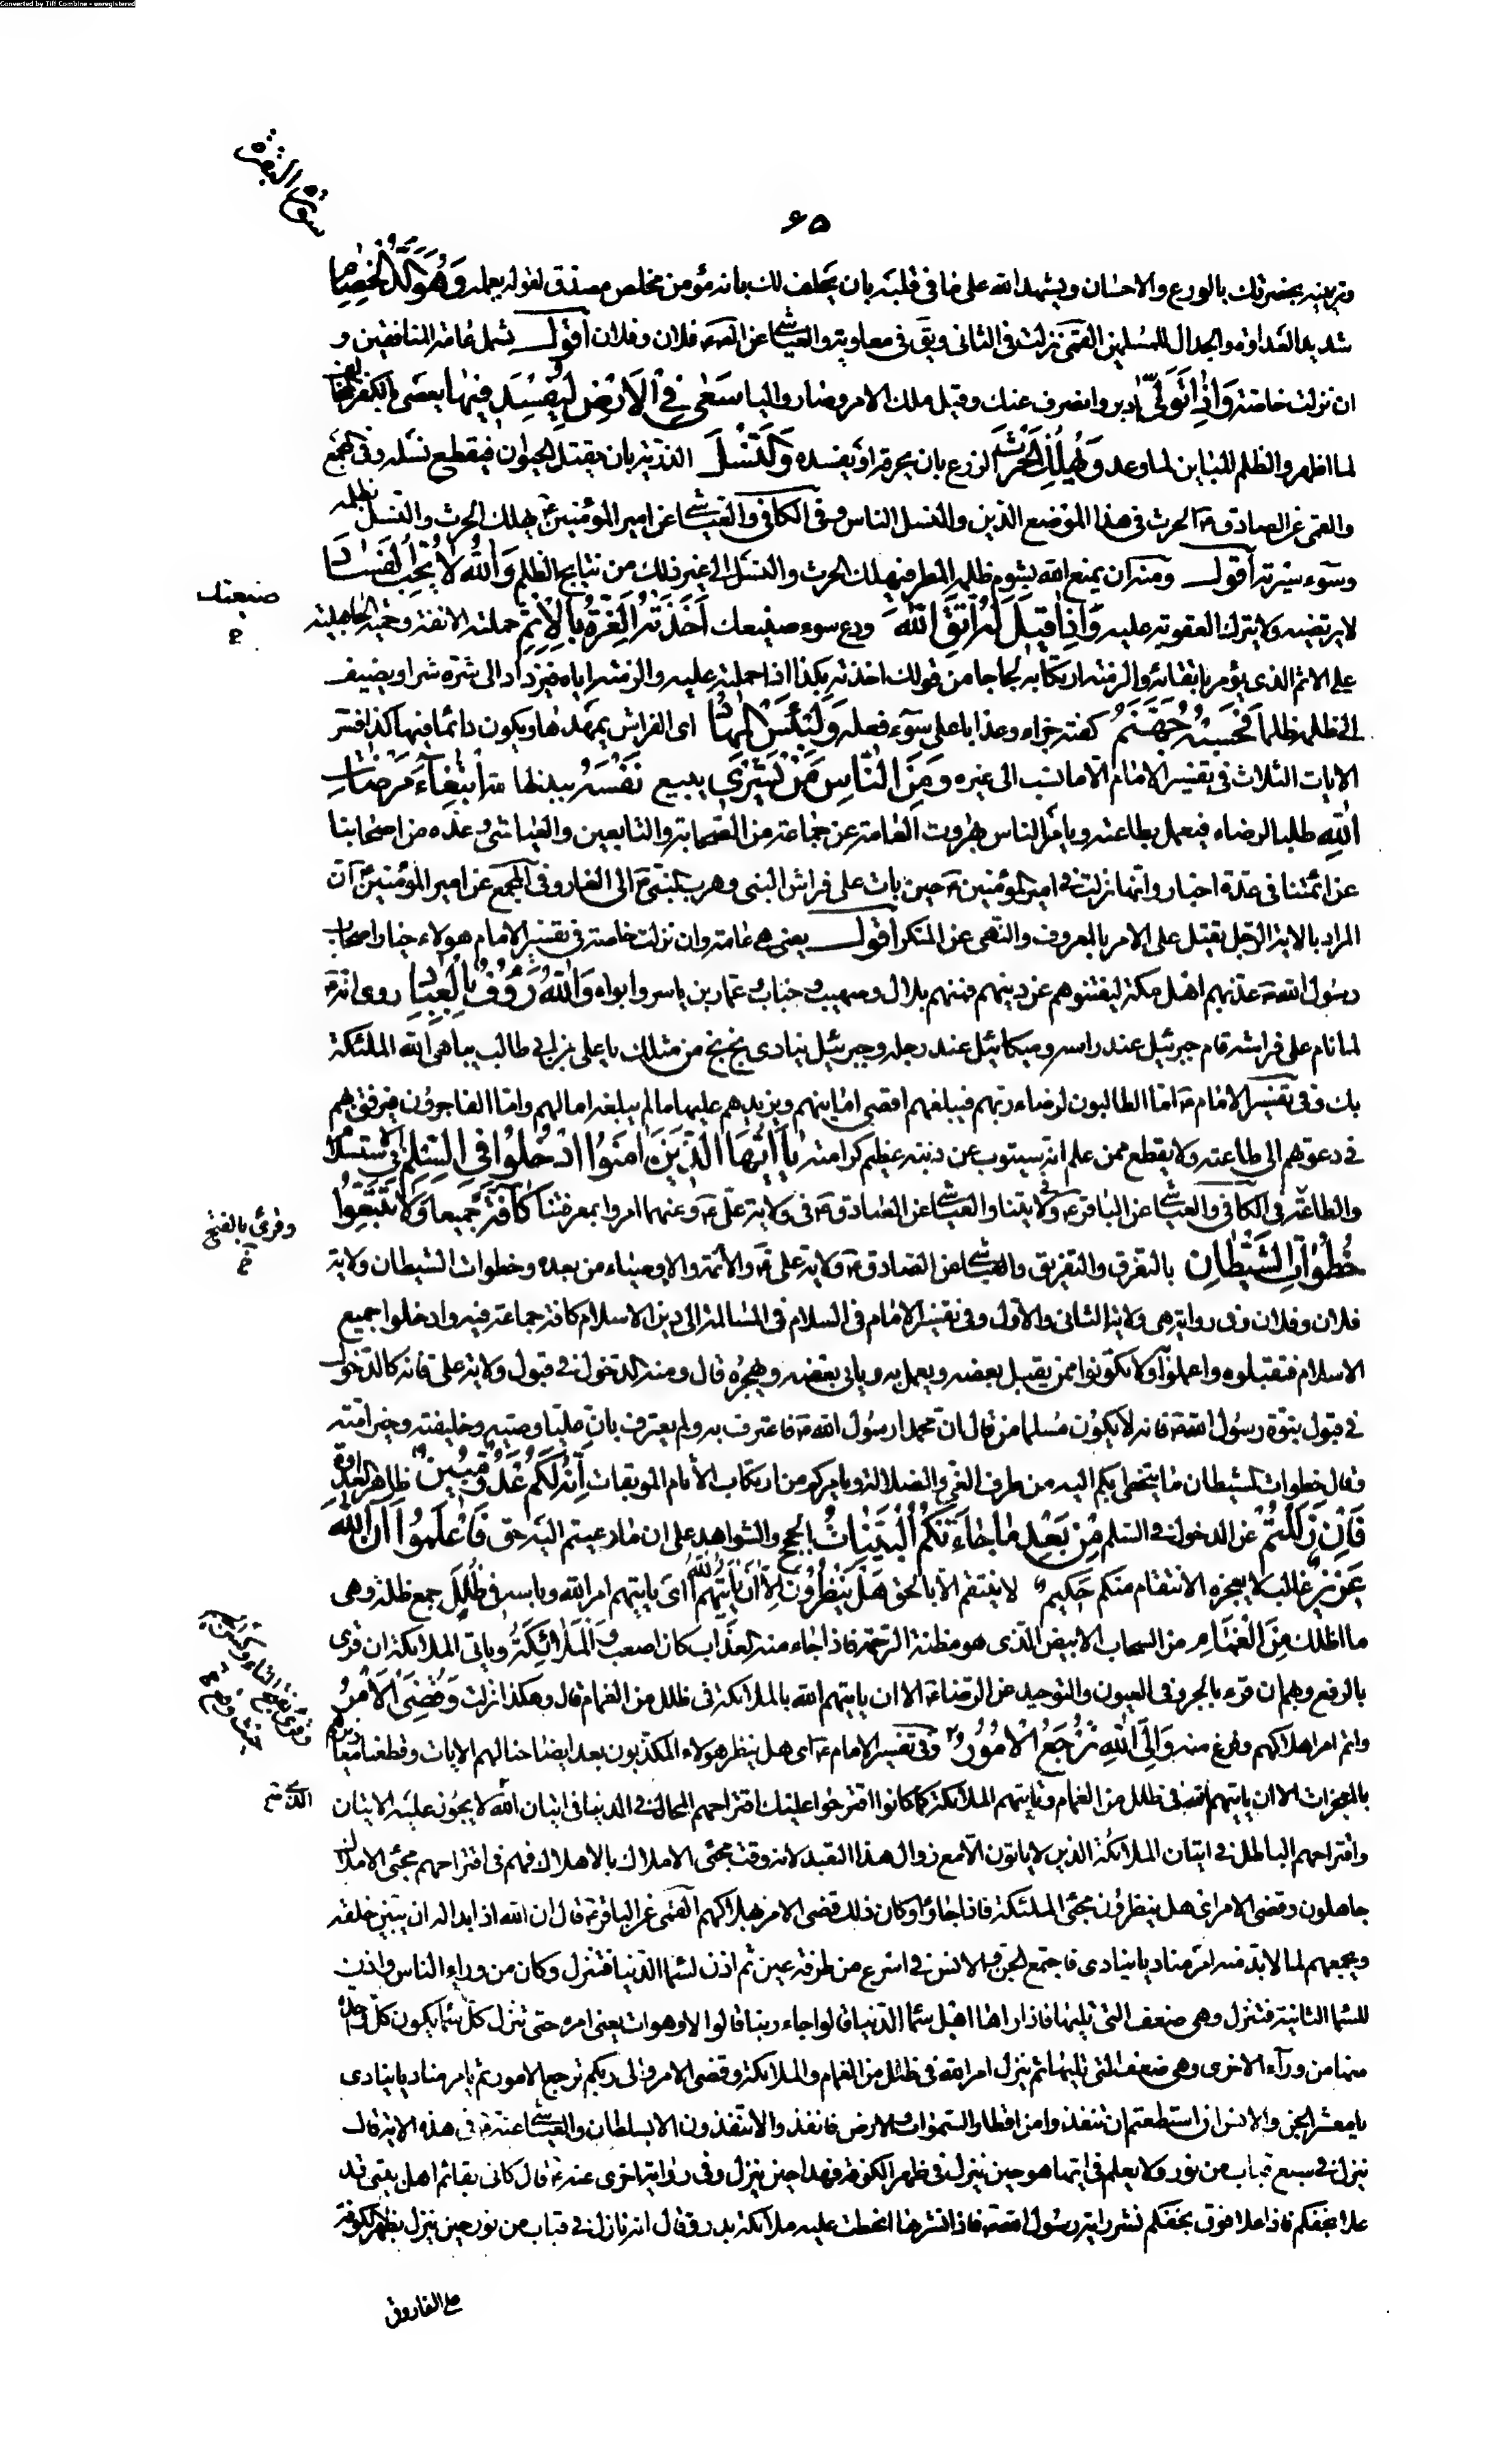 Converted by Tiff Combine - unregistered
سورة البقرة
٦٥
وتزيينه بحضرتك بالورع والاحسان ويشهد الله على ما فى قلبه بان يحلف لك بانه مؤمن مخلص مصدق لقوله بعمله وَهُوَ اَلَدُّ الْخِصٰامِ
شديد العداوة والجدال للمسلمين القمى نزلت فى الثانى ويق فى معاوية والعياشى عن الص ع فلان وفلان اقول تشمل عامة المنافقين و
ان نزلت خاصة وَاِذٰا تَوَلّٰى ادبر وانصرف عنك وقيل ملك الامر وصار واليا سَعٰى فِى الْاَرْضِ لِيُفْسِدَ فِيهٰا يعصى بالكفر المخالف
لما اظهر والظلم المباين لما وعد وَيُهْلِكَ الْحَرْثَ الزرع بان يحرقه او يفسده وَالنَّسْلَ الذرية بان يقتل الحيوان فيقطع نسله وفى المجمع
والقمى عن الصادق ع الحرث فى هذا الموضع الدين والنسل الناس وفى الكافى والعياشى عن امير المؤمنين ع يهلك الحرث والنسل بظلمه
وسوء سيرته اقول ومنه ان يمنع الله بشوم ظلمه المطر فيهلك الحرث والنسل الى غير ذلك من نتايج الظلم وَاللهُ لٰا يُحِبُّ الْفَسٰادَ
لا يرتضيه ولا يترك العقوبة عليه وَاِذٰا قِيلَ لَهُ اتَّقِ اللهَ ودع سوء صنيعك اَخَذَتْهُ الْعِزَّةُ بِالْاِثْمِ حملته الانفة وحمية الجاهلية
صنيعك
على الاثم الذى يؤمر باتقائه والزمته ارتكابه لجاجا من قولك اخذته بكذا اذا حملته عليه والزمته اياه فيزداد الى شره شرا ويضيف
الى ظلمه ظلما فَحَسْبُهُ جَهَنَّمُ كفته جزاء وعذابا على سوء فعله وَلَبِئْسَ الْمِهٰادُ اى الفراش يمهدها ويكون دائما فيها كذا فسر
الايات الثلاث فى تفسير الامام الا ما نسب الى غيره وَمِنَ النّٰاسِ مَنْ يَشْرِى يبيع نَفْسَهُ يبذلها لله ابْتِغٰاءَ مَرْضٰاتِ
اللهِ طلبا لرضاه فيعمل بطاعته ويامر الناس بها روت العامة عن جماعة من الصحابة والتابعين والعياشى وعدة من اصحابنا
عن ائمتنا فى عدة اخبار وانها نزلت فى امير المؤمنين ع حين بات على فراش النبى وهرب النبى ص الى الغار وفى المجمع عن امير المؤمنين ع ان
المراد بالاية الرجل يقتل على الامر بالمعروف والنهى عن المنكر اقول يعنى هى عامة وان نزلت خاصة فى تفسير الامام هولاء خيار اصحاب
رسول الله ص عذبهم اهل مكة ليفتنوهم عن دينهم فمنهم بلال وصهيب وخباب وعمار بن ياسر وابواه وَاللهُ رَؤُفٌ بِالْعِبٰادِ روى انه ع
لما نام على فراشه قام جبرئيل عند راسه وميكائيل عند رجله وجبرئيل ينادى بخ بخ من مثلك يا على بن ابى طالب يباهى الله الملئكة
بك وفى تفسير الامام ع اما الطالبون لرضاء ربهم فيبلغهم اقصى امانيهم ويزيدهم عليها ما لم يبلغه امالهم واما الفاجرون فيرفق بهم
فى دعوتهم الى طاعته ولا يقطع ممن علم انه سيتوب عن ذنبه عظيم كرامته يٰا اَيُّهَا الَّذِينَ اٰمَنُوا ادْخُلُوا فِى السِّلْمِ فى الاستسلام
والطاعة فى الكافى والعياشى عن الباقر ع فى ولايتنا والعياشى عن الصادق ع فى ولاية على ع وعنهما امروا بمعرفتنا كٰافَّةً جميعا وَلٰا تَتَّبِعُوا
وقرئ بالفتح
خُطُوٰاتِ الشَّيْطٰانِ بالتفرق والتفريق والعياشى عن الصادق ع ولاية على ع والائمة والاوصياء من بعده وخطوات الشيطان ولاية
فلان وفلان وفى رواية هى ولاية الثانى والاول وفى تفسير الامام فى السلام فى المسالمة الى دين الاسلام كافة جماعة فيه وادخلوا جميع
الاسلام فتقبلوه واعملوا ولا تكونوا ممن يقبل بعضه ويعمل به ويابى بعضه ويهجره قال ومنه الدخول فى قبول ولاية على فانه كالدخول
فى قبول نبوة رسول الله ص فانه لا يكون مسلما من قال ان محمدا رسول الله ص فاعترف به ولم يعترف بان عليا وصيه وخليفته وخير امته
وقال خطوات الشيطان ما يتخطى بكم اليه من طرق الغى والضلالة ويامركم من ارتكاب الاثام الموبقات اِنَّهُ لَكُمْ عَدُوٌّ مُبِينٌ ظاهر العداوة
فَاِنْ زَلَلْتُمْ عن الدخول فى السلم مِنْ بَعْدِ مٰا جٰاءَتْكُمُ الْبَيِّنٰاتُ الحجج والشواهد على ان ما دعيتم اليه حق فَاعْلَمُوا اَنَّ اللهَ
عَزِيزٌ غالب لا يعجزه الانتقام منكم حَكِيمٌ لا ينتقم الا بالحق هَلْ يَنْظُرُونَ اِلّٰا اَنْ يَاْتِيَهُمُ اللهُ اى ياتيهم امر الله وباسه فِى ظُلَلٍ جمع ظلة وهى
ما اظلك مِنَ الْغَمٰامِ من السحاب الابيض الذى هو مظنة الرحمة فاذا جاء منه العذاب كان اصعب وَالْمَلٰائِكَةُ وياتى الملائكة ان قرئ
بالرفع وبهم ان قرء بالجر وفى العيون والتوحيد عن الرضا ع الا ان ياتيهم الله بالملائكة فى ظلل من الغمام قال وهكذا نزلت وَقُضِىَ الْاَمْرُ
واتم امر اهلاكهم وفرغ منه وَاِلَى اللهِ تُرْجَعُ الْاُمُورُ وفى تفسير الامام ع اى هل ينظر هولاء المكذبون بعد ايضاحنا لهم الايات وقطعنا معاذيرهم
بالمعجزات الا ان ياتيهم الله فى ظلل من الغمام وتاتيهم الملائكة كما كانوا اقترحوا عليك اقتراحهم المحال فى الدنيا فى اتيان الله لا يجوز عليه الاتيان
واقتراحهم الباطل فى اتيان الملائكة الذين لا ياتون الا مع زوال هذا التعبد لانه وقت مجئ الاملاك بالاهلاك فهم فى اقتراحهم مجئ الاملاك
جاهلون وقضى الامر اى هل ينظرون مجئ الملئكة فاذا جاؤا وكان ذلك قضى الامر بهلاكهم القمى عن الباقر ع قال ان الله اذا بدا له ان يبين خلقه
ويجمعهم لما لا بد منه امر مناديا ينادى فاجتمع الجن والانس فى اسرع من طرفة عين ثم اذن لسماء الدنيا فتنزل وكان من وراء الناس واذن
للسماء الثانية فتنزل وهى ضعف التى تليها فاذا راها اهل سماء الدنيا قالوا جاء ربنا قالوا لا وهو ات يعنى امره حتى تنزل كل سماء يكون كل واحدة
منها من وراء الاخرى وهى ضعف التى تليها ثم ينزل امر الله فى ظلل من الغمام والملائكة وقضى الامر والى ربكم ترجع الامور ثم يامر مناديا ينادى
يا معشر الجن والانس ان استطعتم ان تنفذوا من اقطار السموات والارض فانفذوا لا تنفذون الا بسلطان والعياشى عنه ع فى هذه الاية قال
ينزل فى سبع قباب من نور ولا يعلم فى ايتها هو حين ينزل فى ظهر الكوفة فهذا حين ينزل وفى رواية اخرى عنه ع قال كانى بقائم اهل بيتى قد
علا نجفكم فاذا علا فوق نجفكم نشر راية رسول الله ص فاذا نشرها انحطت عليه ملائكة بدر وقال انه نازل فى قباب من نور حين ينزل بظهر الكوفة
على الفاروق